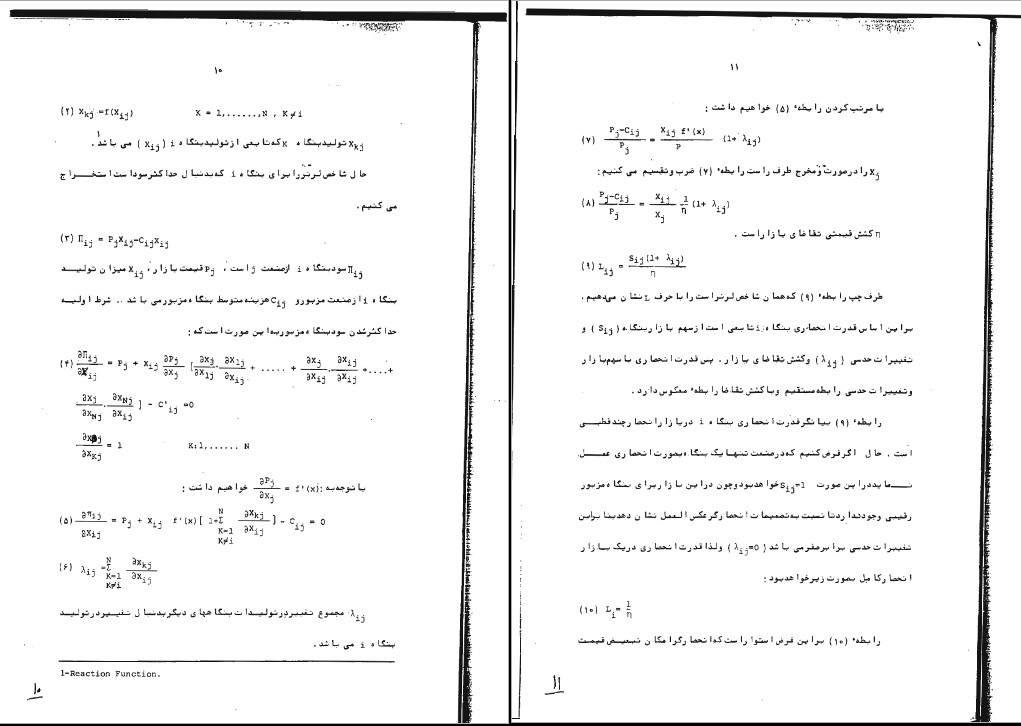 ۱۰
(۲) X_kj =f(X_ij)    K = 1,......,N , K≠i
X_kj تولیدبنگاه K که تابعی ازتولیدبنگاه i (X_ij) می باشد.۱
حال شاخص لرنررا برای بنگاه i که بدنبال حداکثرسوداست استخراج
می کنیم.
(۳) Π_ij = P_jX_ij-C_ijX_ij
Π_ij سودبنگاه i ازصنعت j است، P_j قیمت بازار، X_ij میزان تولید
بنگاه i ازصنعت مزبورو C_ij هزینه متوسط بنگاه مزبورمی باشد.. شرط اولیه
حداکثرشدن سودبنگاه مزبوربه این صورت است که:
(۴) ∂Π_ij/∂X_ij = P_j + X_ij ∂P_j/∂X_j [∂X_j/∂X_1j . ∂X_1j/∂X_ij + ..... + ∂X_j/∂X_ij . ∂X_ij/∂X_ij +....+
∂X_j/∂X_Nj . ∂X_Nj/∂X_ij ] - C'_ij =0
∂X_j/∂X_kj = 1    K:1,...... N
با توجه به: ∂P_j/∂X_j = f'(x) خواهیم داشت:
(۵) ∂π_ij/∂X_ij = P_j + X_ij f'(x)[ 1+Σ^N_K=1 K≠i ∂X_kj/∂X_ij ]- C_ij = 0
(۶) λ_ij =Σ^N_K=1 K≠i ∂X_kj/∂X_ij
λ_ij مجموع تغییردرتولیدات بنگاههای دیگربدنبال تغییردرتولید
بنگاه i می باشد.
1-Reaction Function.
۱۰
۱۱
با مرتب کردن رابطه (۵) خواهیم داشت:
(۷) P_j-C_ij/P_j = X_ij f'(x)/P (1+ λ_ij)
X_j را درصورت ومخرج طرف راست رابطه (۷) ضرب وتقسیم می کنیم:
(۸) P_j-C_ij/P_j = X_ij/X_j 1/η (1+ λ_ij)
η کشش قیمتی تقاضای بازاراست.
(۹) L_ij = S_ij(1+ λ_ij)/η
طرف چپ رابطه (۹) که همان شاخص لرنراست را با حرف L نشان میدهیم.
براین اساس قدرت انحصاری بنگاه i تابعی است ازسهم بازاربنگاه (S_ij) و
تغییرات حدسی (λ_ij) وکشش تقاضای بازار. پس قدرت انحصاری با سهم بازار
وتغییرات حدسی رابطه مستقیم وبا کشش تقاضا رابطه معکوس دارد.
رابطه (۹) بیانگرقدرت انحصاری بنگاه i دربازارانحصارچندقطبی
است. حال اگرفرض کنیم که درصنعت تنهایک بنگاه بصورت انحصاری عمل
نماید دراین صورت S_ij=1 خواهدبودوچون دراین بازاربرای بنگاه مزبور
رقیبی وجودنداردتا نسبت به تصمیمات انحصارگرعکس العمل نشان دهدبنابراین
تغییرات حدسی برابرصفرمی باشد (λ_ij=0) ولذاقدرت انحصاری دریک بازار
انحصارکامل بصورت زیرخواهدبود:
(۱۰) L_i= 1/η
رابطه (۱۰) براین فرض استواراست که انحصارگرامکان تبعیض قیمت
۱۱